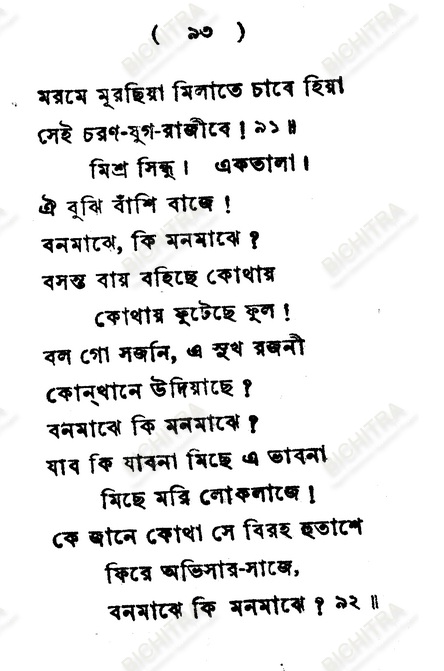 ( ৯৩ )
মরমে মূরছিয়া মিলাতে চাবে হিয়া
সেই চরণ-যুগ-রাজীবে ! ৯১ ॥
মিশ্র সিন্ধু । একতালা ।
ঐ বুঝি বাঁশি বাজে !
বনমাঝে, কি মনমাঝে ?
বসন্ত বায় বহিছে কোথায়
কোথায় ফুটেছে ফুল !
বল গো সজনি, এ সুখ রজনী
কোন্‌খানে উদিয়াছে ?
বনমাঝে কি মনমাঝে ?
যাব কি যাবনা মিছে এ ভাবনা
মিছে মরি লোকলাজে !
কে জানে কোথা সে বিরহ হুতাশে
ফিরে অভিসার-সাজে,
বনমাঝে কি মনমাঝে ? ৯২ ॥
BICHITRA